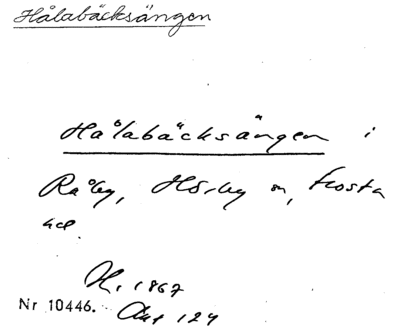 Hålabäcksängen
Hålabäcksängen i
Råby, Hörby sn, Frosta
hd.
H. 1867
Nr 10446. Akt 124